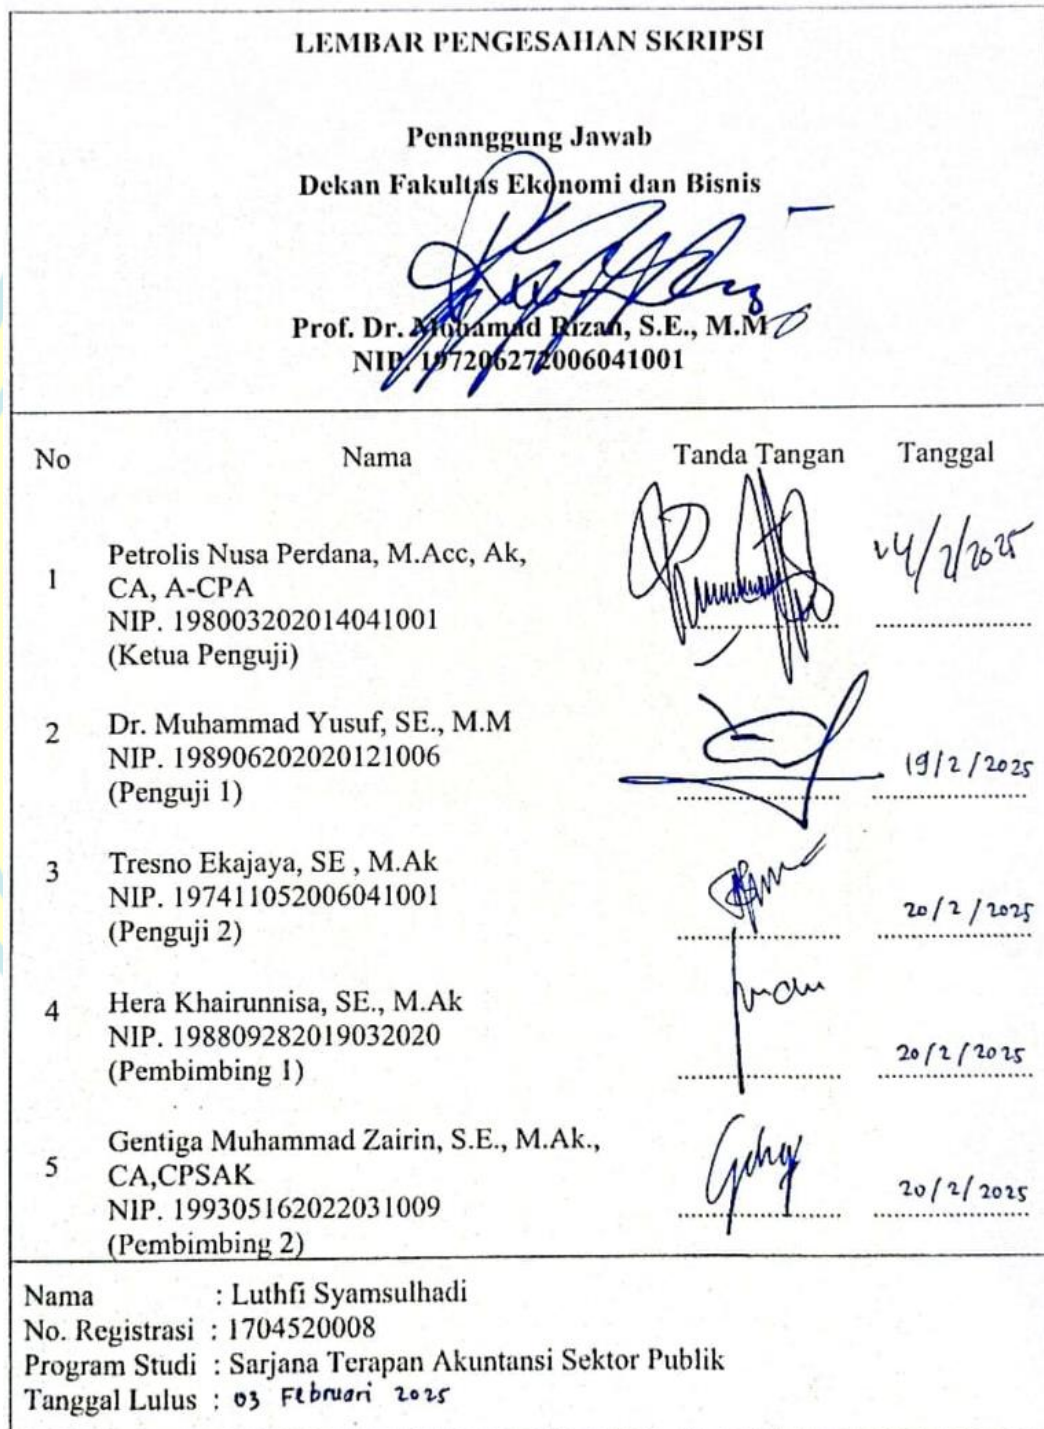 LEMBAR PENGESAHAN SKRIPSI
Penanggung Jawab
Dekan Fakultas Ekonomi dan Bisnis
Prof. Dr. Mohamad Rizan, S.E., M.M
NIP. 197206272006041001
No Nama Tanda Tangan Tanggal
1 Petrolis Nusa Perdana, M.Acc, Ak,
CA, A-CPA
NIP. 198003202014041001
(Ketua Penguji)
24/2/2025
2 Dr. Muhammad Yusuf, SE., M.M
NIP. 198906202020121006
(Penguji 1)
19/2/2025
3 Tresno Ekajaya, SE , M.Ak
NIP. 197411052006041001
(Penguji 2)
20/2/2025
4 Hera Khairunnisa, SE., M.Ak
NIP. 198809282019032020
(Pembimbing 1)
20/2/2025
5 Gentiga Muhammad Zairin, S.E., M.Ak.,
CA,CPSAK
NIP. 199305162022031009
(Pembimbing 2)
20/2/2025
Nama : Luthfi Syamsulhadi
No. Registrasi : 1704520008
Program Studi : Sarjana Terapan Akuntansi Sektor Publik
Tanggal Lulus : 03 Februari 2025